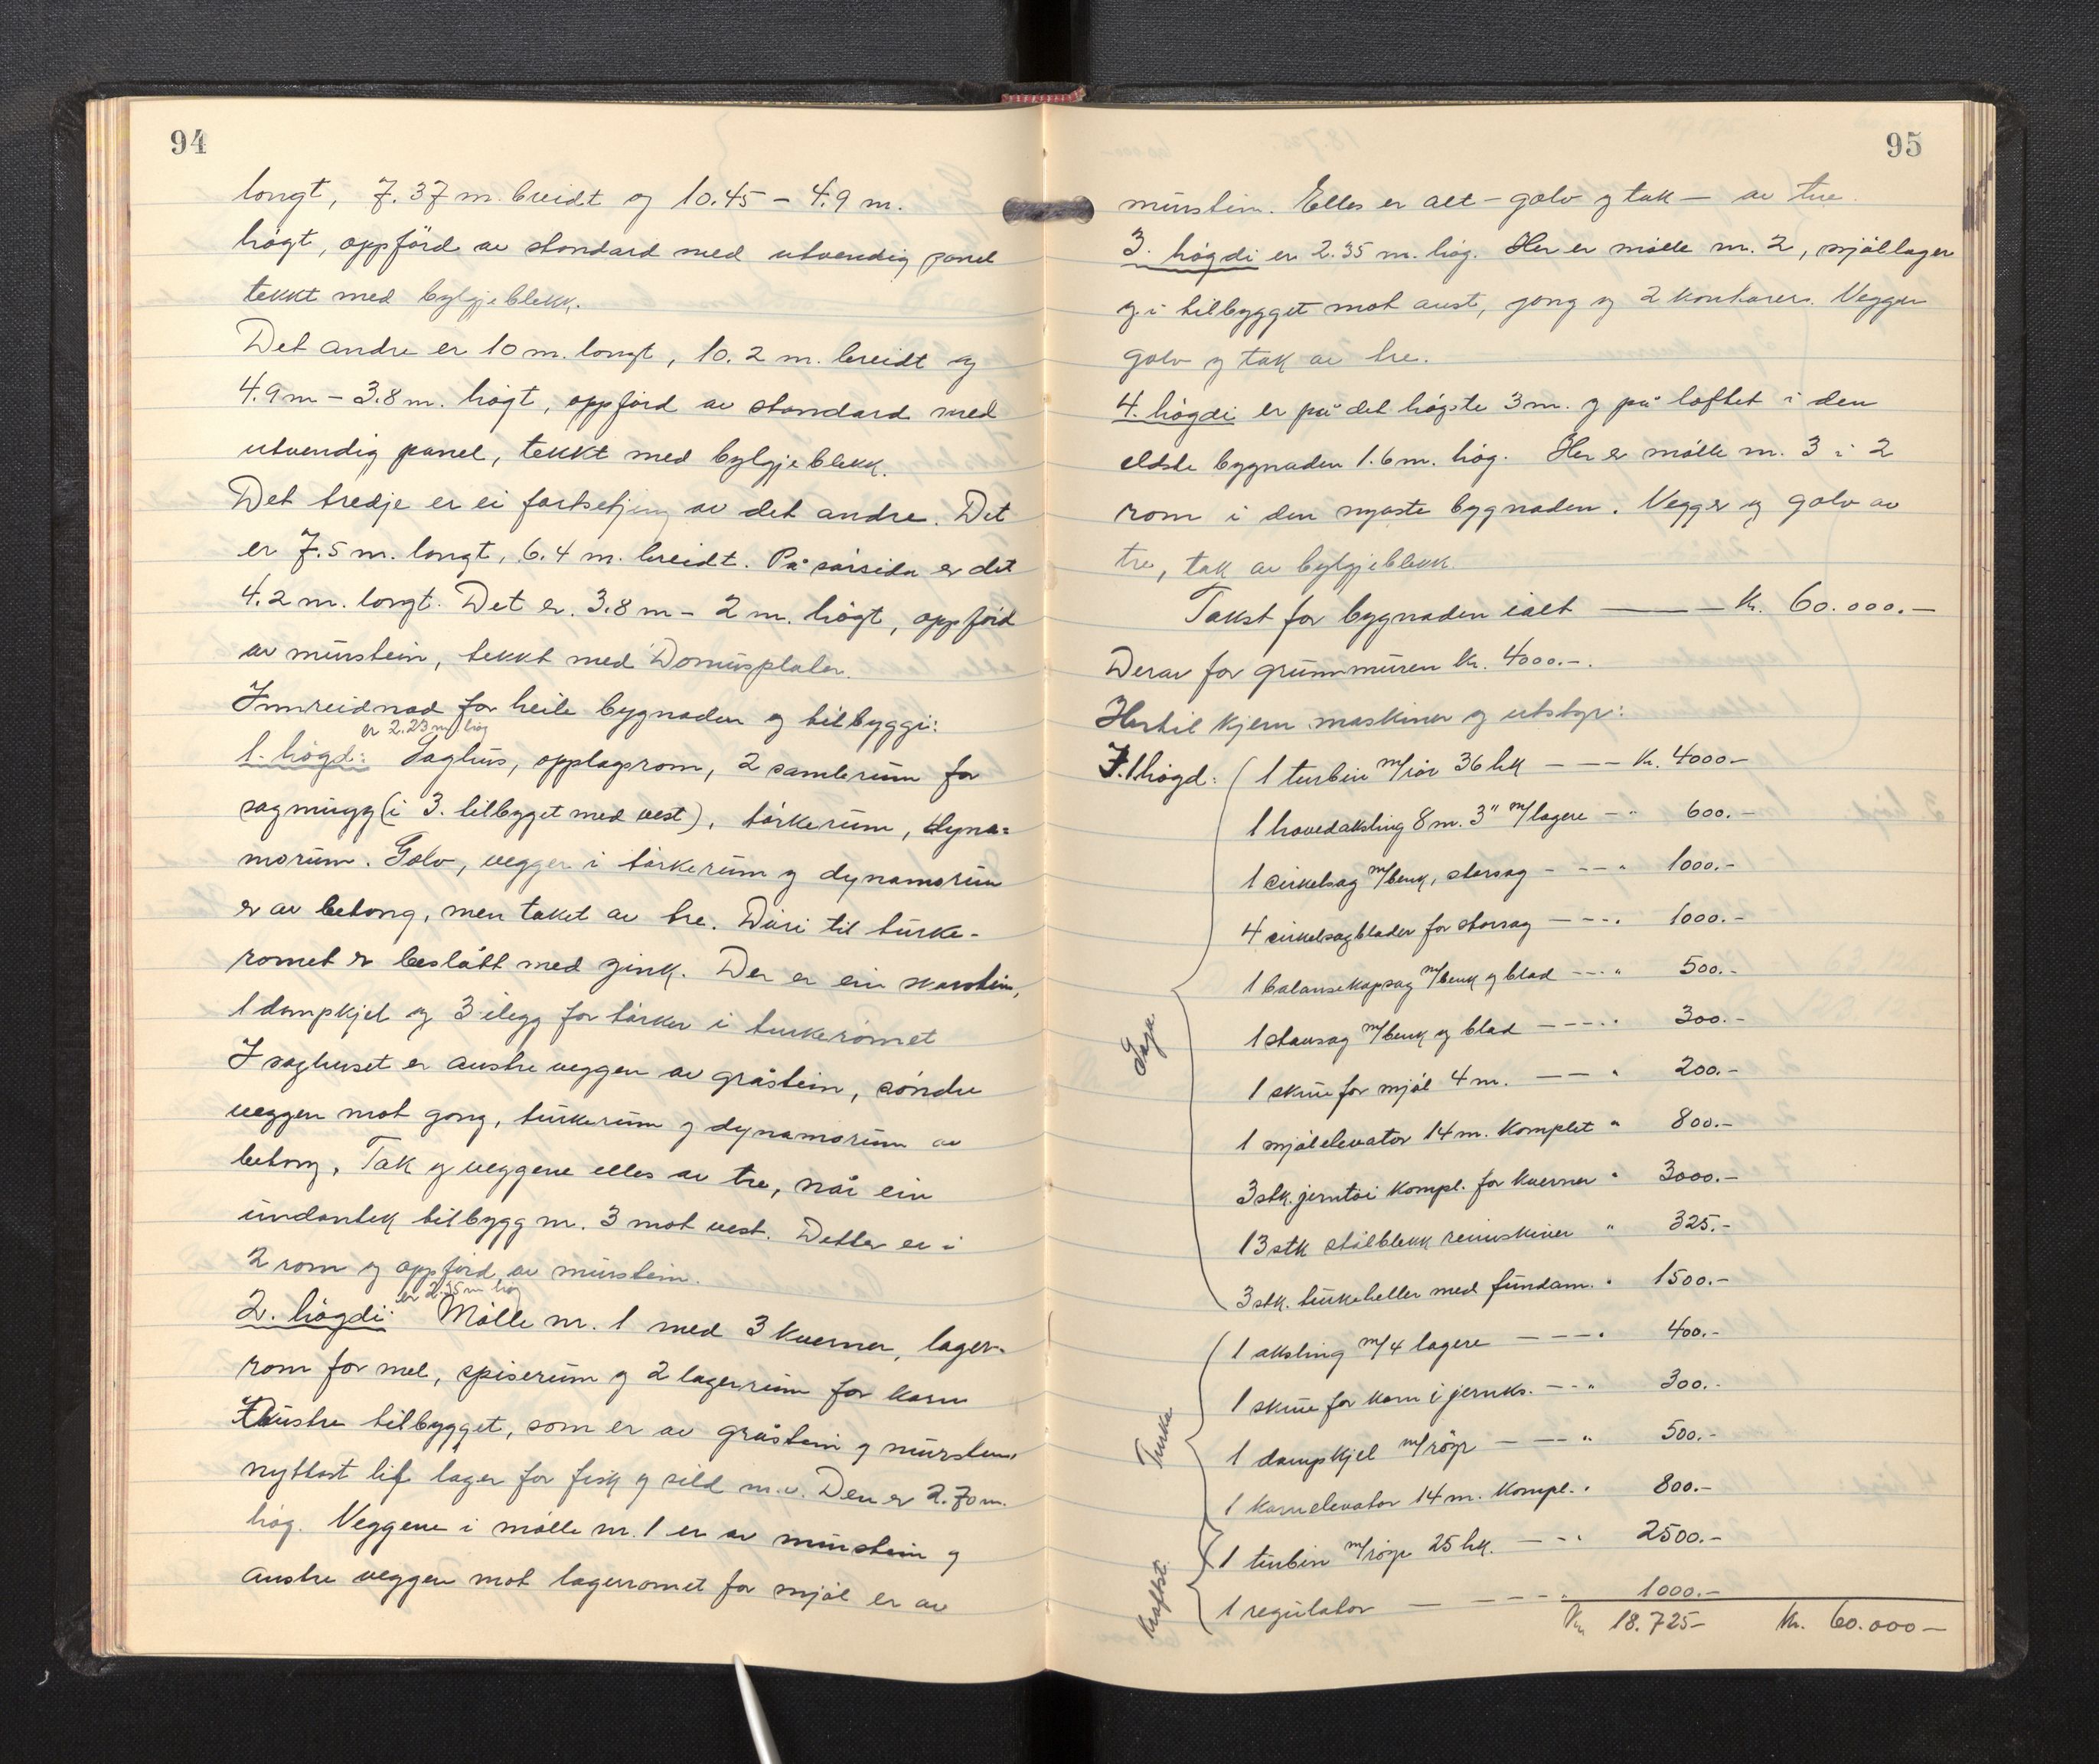 94
longt, 7.37 m. breidt og 10.45 - 4.9 m.
högt, oppförd av standard med utvendig panel
tekkt med bylgjeblekk.
Det andre er 10 m. longt, 10.2 m. breidt og
4.9 m - 3.8 m. högt, oppförd av standard med
utvendig panel, tekkt med bylgjeblekk.
Det tredje er ei fortsetjing av det andre. Det
er 7.5 m. longt, 6.4 m. breidt. På sörsida er det
4.2 m. longt. Det er 3.8 m - 2 m. högt, oppförd
av murstein, tekkt med Domusplater.
Innreidnad for heile bygnaden og tilbyggi:
er 2.23 m hög
1. högd: Saghus, opplagsrom, 2 samlerum for
sagmugg (i 3. tilbygget med vest), törkerum, dyna=
morum. Golv, vegger i törkerum og dynamorum
er av betong, men taket av tre. Döri til turke-
romet er beslått med zink. Der er ein skorstein,
1 dampkjel og 3 ilegg for törker i turkeromet
I saghuset er austre veggen av gråstein, söndre
veggen mot gong, turkerum og dynamorum av
betong, Tak og veggene elles av tre, når ein
undantek tilbygg nr. 3 mot vest. Detter er i
2 rom og oppförd av murstein.
er 2.35 m hög
2. högdi: Mölle nr. 1 med 3 kverner, lager-
rom for mel, spiserum og 2 lagerrum for korn
Austre tilbygget, som er av gråstein og murstein,
nyttast til lager for fisk og sild m.v. Den er 2.70 m.
hög. Veggene i mölle nr. 1 er av murstein og
austre veggen mot lagerromet for mjöl er av
95
murstein. Elles er alt - golv og tak - av tre.
3. högdi er 2.35 m. hög. Her er mölle nr. 2, mjöllager
og i tilbygget mot aust, gong og 2 kontorer. Vegger
golv og tak av tre.
4. högdi er på det högste 3 m. og på loftet i den
eldste bygnaden 1.6 m. hög. Her er mölle nr. 3 i 2
rom i den nyaste bygnaden. Vegger og golv av
tre, tak av bylgjeblekk.
Takst for bygnaden ialt — Kr. 60.000.-
Derav for grunnmuren kr. 4000.-.
Hertil kjem maskiner og utstyr:
I. 1 högd: 1 turbin m/rör 36 hk — Kr. 4000-
1 hovedaksling 8 m. 3" m/lagere - " 600.-
1 cirkelsag m/benk, storsag - " 1000.-
4 cirkelsagblader for storsag - " 1000.-
1 balansekapsag m/benk og blad - " 500.-
1 stavsag m/benk og blad - " 300.-
1 skrue for mjöl 4 m. - " 200.-
1 mjölelevator 14 m. komplet " 800.-
3 stk. jerntöi kompl. for kverner " 3000.-
13 stk stålblekk reimskiver " 325.-
3 stk. turkeheller med fundam. " 1500.-
Saga
1 aksling m/4 lagere - " 400.-
1 skrue for korn i jernks. - " 300.-
1 dampkjel m/röyr - " 500.-
1 kornelevator 14 m. kompl. " 800.-
Turka
1 turbin m/röyr 25 hk. - " 2500.-
1 regulator - " 1000.-
Kraftst.
Kr. 18.725- Kr. 60.000-